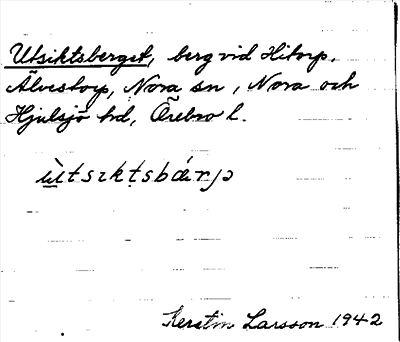 Utsiktsberget, berg vid Hitorp,
Älvestorp, Nora sn, Nora och
Hjulsjö hd, Örebro l.
ùtsıktsbárȷə
Kerstin Larsson 1942